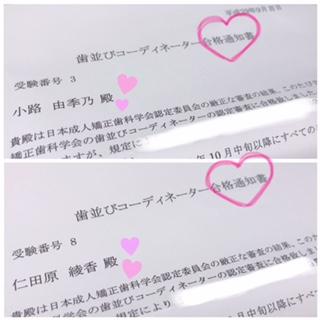 平成29年9月吉日
歯並びコーディネーター合格通知書
受験番号 3
小路 由季乃 殿
貴殿は日本成人矯正歯科学会認定委員会の厳正な審査の結果、このたび
矯正歯科学会の歯並びコーディネーターの認定審査に合格致しました
ますが、規定に
年10月中旬以降にすべての
歯並びコーディネーター合格通知書
受験番号 8
仁田原 綾香 殿
貴殿は日本成人矯正歯科学会認定委員会の厳正な審査の結果、この
矯正歯科学会の歯並びコーディネーターの認定審査に合格致し
ますが、規定により
月中旬以降にすべて